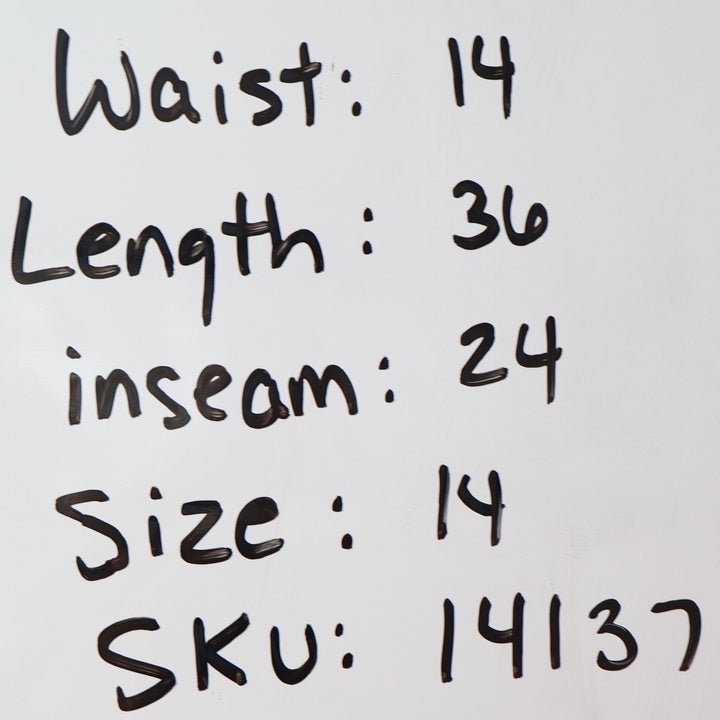 Waist: 14
Length: 36
inseam: 24
Size: 14
SKU: 14137